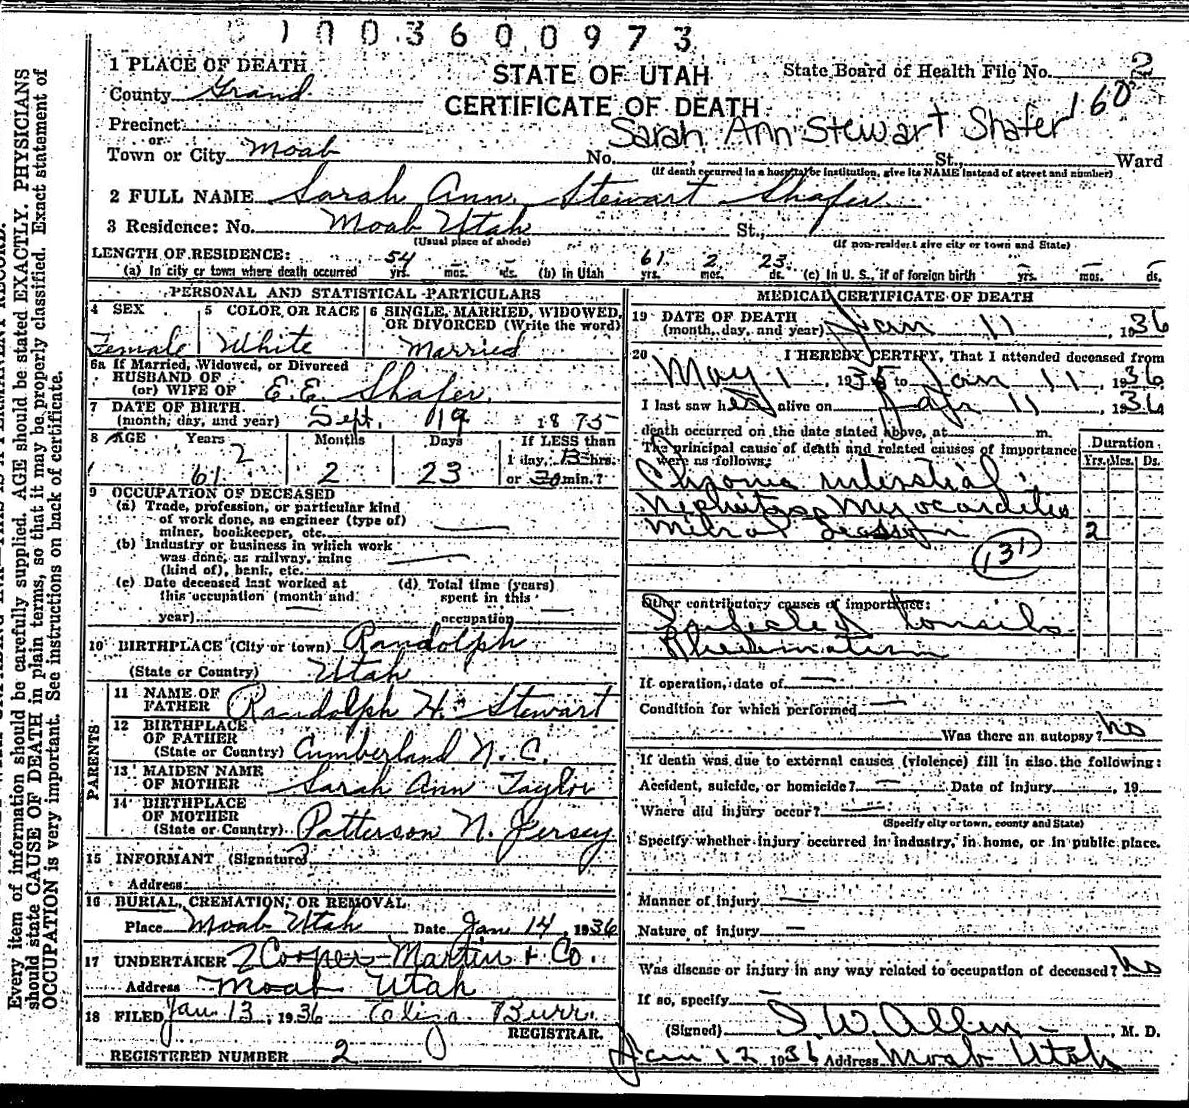 1003600973
1 PLACE OF DEATH
STATE OF UTAH
State Board of Health File No. 2
County Grand
CERTIFICATE OF DEATH
160
Precinct
Sarah Ann Stewart Shafer
or
Town or City Moab No. St., Ward
(If death occurred in a hospital or institution, give its NAME instead of street and number)
2 FULL NAME Sarah Ann Stewart Shafer
3 Residence: No. Moab Utah St.,
(Usual place of abode) (If non-resident give city or town and State)
LENGTH OF RESIDENCE:
(a) In city or town where death occurred 54 yrs. mos. ds. (b) In Utah 61 yrs. 2 mos. 23 ds. (c) In U. S., if of foreign birth yrs. mos. ds.
PERSONAL AND STATISTICAL PARTICULARS
4 SEX 5 COLOR OR RACE 6 SINGLE, MARRIED, WIDOWED, OR DIVORCED (Write the word)
Female White Married
6a If Married, Widowed, or Divorced
HUSBAND OF
(or) WIFE OF E.E. Shafer
7 DATE OF BIRTH
(month, day, and year) Sept. 19 1875
8 AGE Years Months Days If LESS than
2 1 day, 13 hrs.
61 2 23 or 30 min.?
9 OCCUPATION OF DECEASED
(a) Trade, profession, or particular kind
of work done, as engineer (type of)
miner, bookkeeper, etc.
(b) Industry or business in which work
was done, as railway, mine
(kind of), bank, etc.
(c) Date deceased last worked at (d) Total time (years)
this occupation (month and spent in this
year) occupation
10 BIRTHPLACE (City or town) Randolph
(State or Country) Utah
PARENTS
11 NAME OF
FATHER Randolph H. Stewart
12 BIRTHPLACE
OF FATHER
(State or Country) Cumberland N.C.
13 MAIDEN NAME
OF MOTHER Sarah Ann Taylor
14 BIRTHPLACE
OF MOTHER
(State or Country) Patterson N. Jersey
15 INFORMANT (Signature)
Address
16 BURIAL, CREMATION, OR REMOVAL
Place Moab Utah Date Jan 14, 1936
17 UNDERTAKER Cooper-Martin & Co.
Address Moab Utah
18 FILED Jan 13, 1936 Eliza Burr
REGISTRAR.
REGISTERED NUMBER 2
MEDICAL CERTIFICATE OF DEATH
19 DATE OF DEATH
(month, day, and year) Jan 11, 1936
20 I HEREBY CERTIFY, That I attended deceased from
May 1, 1935 to Jan 11, 1936
I last saw her alive on Jan 11, 1936
death occurred on the date stated above, at m.
The principal cause of death and related causes of importance
were as follows:
Duration
Yrs. Mos. Ds.
Chronic interstial
Nephritis Myocarditis
Mitral 2
131
Other contributory causes of importance:
Infected Tonsils
Rheumatism
If operation, date of
Condition for which performed
Was there an autopsy? no
If death was due to external causes (violence) fill in also the following:
Accident, suicide, or homicide? Date of injury , 19
Where did injury occur?
(Specify city or town, county and State)
Specify whether injury occurred in industry, in home, or in public place.
Manner of injury
Nature of injury
Was disease or injury in any way related to occupation of deceased? no
If so, specify
(Signed) I. W. Allen, M. D.
Jan 12 1936 Address Moab Utah
Every item of information should be carefully supplied. AGE should be stated EXACTLY. PHYSICIANS
should state CAUSE OF DEATH in plain terms, so that it may be properly classified. Exact statement of
OCCUPATION is very important. See instructions on back of certificate.